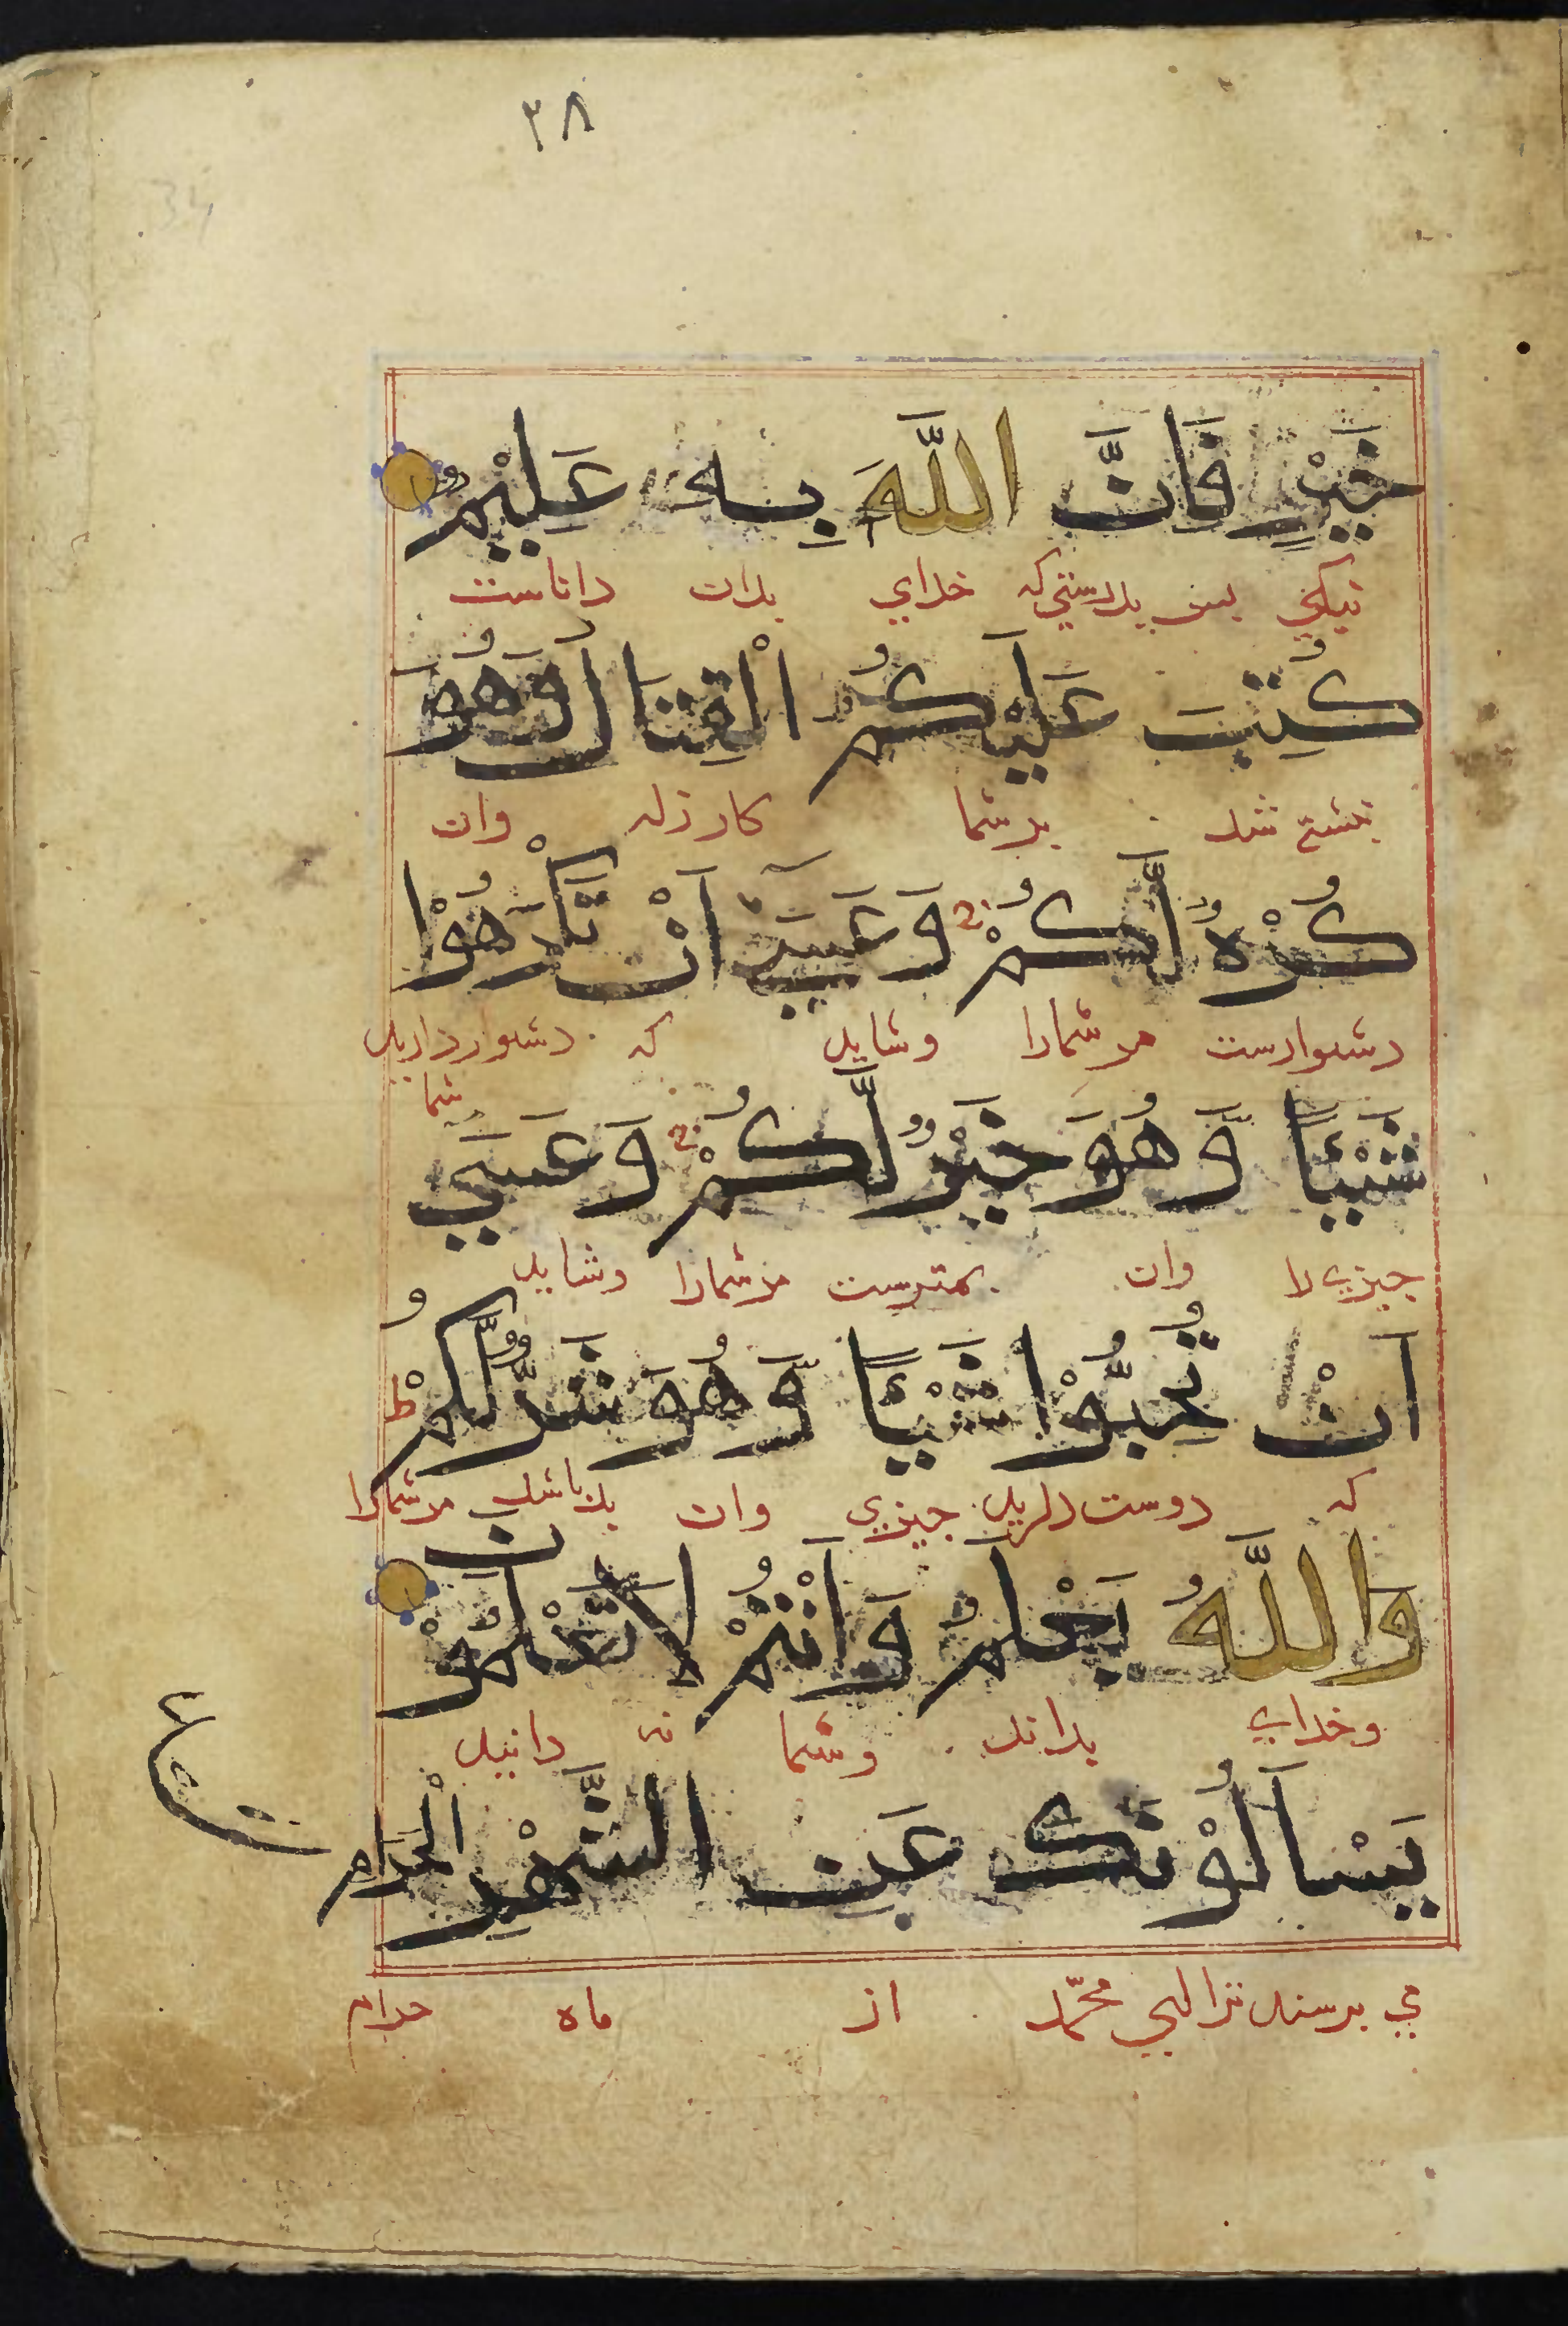 ۳۸
34
خَيْرٍ فَاِنَّ اللّٰهَ بِهٖ عَلِيْمٌ
نیکی بس بدرستی که خدای بدان داناست
كُتِبَ عَلَيْكُمُ الْقِتَالُ وَهُوَ
نبشته شد بر شما کارزار وان
كُرْهٌ لَّكُمْ وَعَسٰٓى اَنْ تَكْرَهُوْا
دشوارست مر شمارا وشاید که دشوار دارید شما
شَيْـًٔا وَّهُوَ خَيْرٌ لَّكُمْ وَعَسٰى
جیزی را وان بهترست مر شمارا وشاید
اَنْ تُحِبُّوْا شَيْـًٔا وَّهُوَ شَرٌّ لَّكُمْ ط
که دوست دارید جیزی وان بد باشد مر شمارا
وَاللّٰهُ يَعْلَمُ وَاَنْتُمْ لَا تَعْلَمُوْنَ
وخدای بداند وشما نه دانید
يَسْاَلُوْنَكَ عَنِ الشَّهْرِ الْحَرَامِ
می برسند ترا ای محمّد از ماه حرام